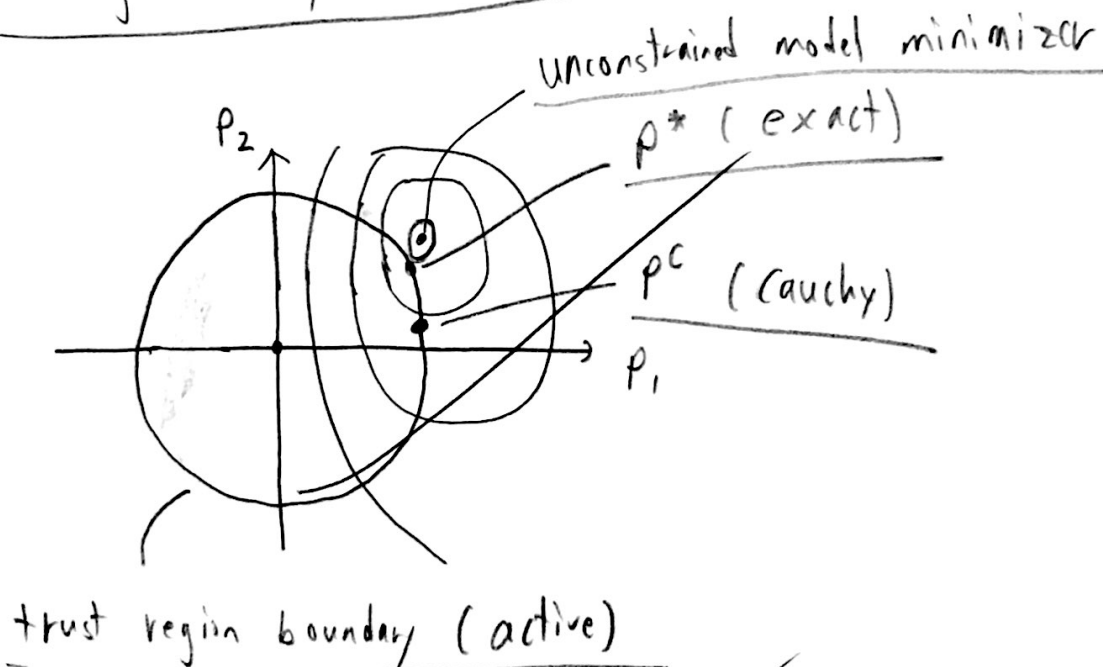 unconstrained model minimizer
p* (exact)
P₂
pᶜ (Cauchy)
P₁
trust region boundary (active)